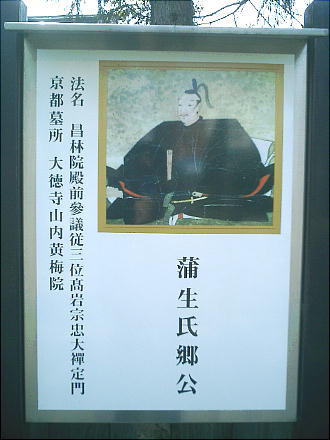 蒲生氏郷公
法名　昌林院殿前參議従三位髙岩宗忠大禪定門
京都墓所　大徳寺山内黄梅院